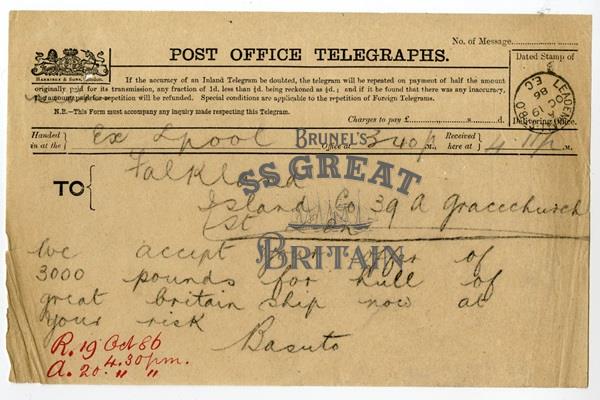 No. of Message
POST OFFICE TELEGRAPHS.
HARRISON & SONS, London.
Dated Stamp of
If the accuracy of an Inland Telegram be doubted, the telegram will be repeated on payment of half the amount
originally paid for its transmission, any fraction of 1d. less than ½d. being reckoned as ½d.; and if it be found that there was any inaccuracy,
the amount paid for repetition will be refunded. Special conditions are applicable to the repetition of Foreign Telegrams.
N.B.—This Form must accompany any inquiry made respecting this Telegram.
Charges to pay £ s. d.
LEADENHALL
B.O.
E.C
A
OC 19
86
Delivering Office.
Handed in at the } Ex Lpool Office at 3 40 p M., Received here at } 4.11 p M.
TO { Falkland
Island Co 39 A Gracechurch
St Ln
We accept your offer of
3000 pounds for hull of
great britain ship now at
your risk
Basuto
R. 19 Oct 86
4.30 pm.
A. 20 " "
BRUNEL'S
SS GREAT
BRITAIN